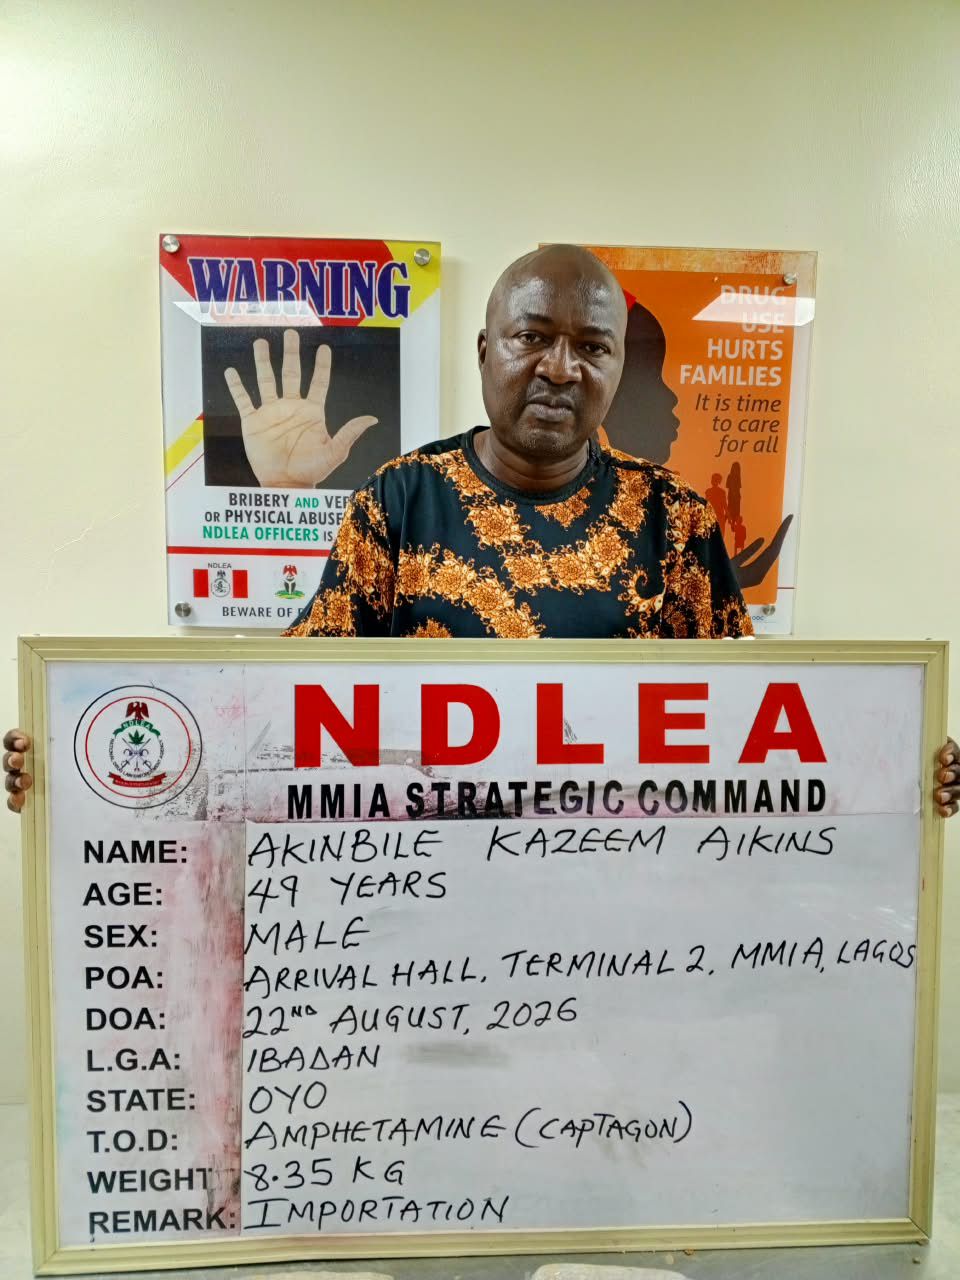 WARNING
BRIBERY AND
OR PHYSICAL ABUSE
NDLEA OFFICERS IS
NDLEA
BEWARE OF
DRUG
USE
HURTS
FAMILIES
It is time
to care
for all
NDLEA
NDLEA
MMIA STRATEGIC COMMAND
NAME: AKINBILE KAZEEM AIKINS
AGE: 49 YEARS
SEX: MALE
POA: ARRIVAL HALL, TERMINAL 2, MMIA, LAGOS
DOA: 22ND AUGUST, 2026
L.G.A: IBADAN
STATE: OYO
T.O.D: AMPHETAMINE (CAPTAGON)
WEIGHT 8.35 KG
REMARK: IMPORTATION